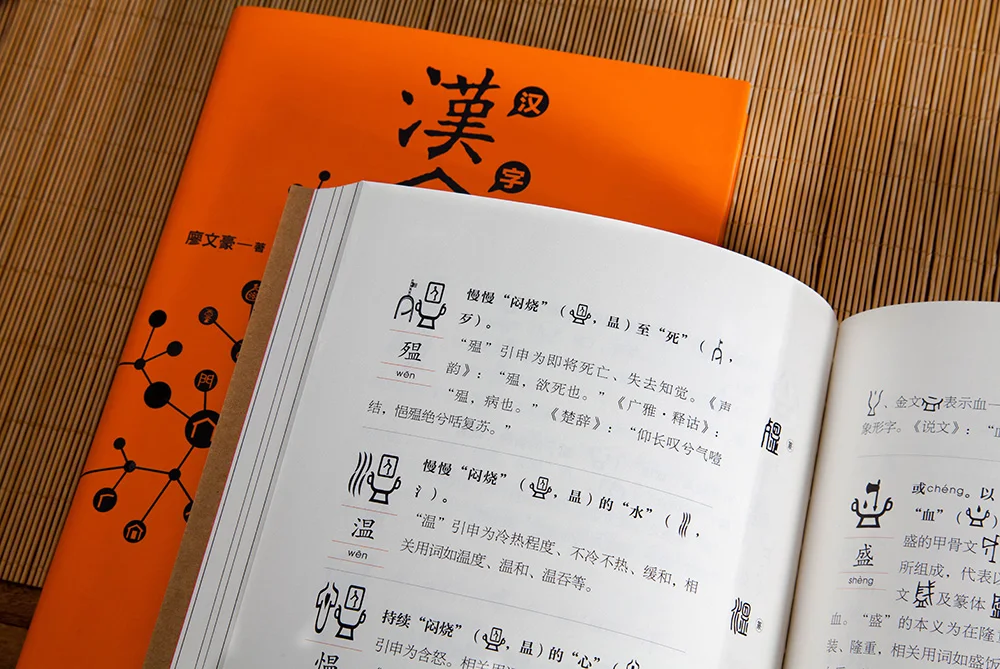 漢
汉
字
廖文豪一著
門
慢慢“闷烧”（，昷）至“死”（，
歹）。
殟
wēn
“殟”引申为即将死亡、失去知觉。《声
韵》：“殟，欲死也。”《广雅·释诂》：
“殟，病也。”《楚辞》：“仰长叹兮气噎
结，悒殟绝兮咶复苏。”
慢慢“闷烧”（，昷）的“水”（，
氵）。
温
wēn
“温”引申为冷热程度、不冷不热、缓和，相
关用词如温度、温和、温吞等。
持续“闷烧”（，昷）的“心”（
引申为含怒。相关用
愠
、金文表示血一
象形字。《说文》：“
或chéng。以
“血”（
盛
shèng
盛的甲骨文
所组成，代表
文及篆体
血。“盛”的本义为在隆
装、隆重，相关用词如盛